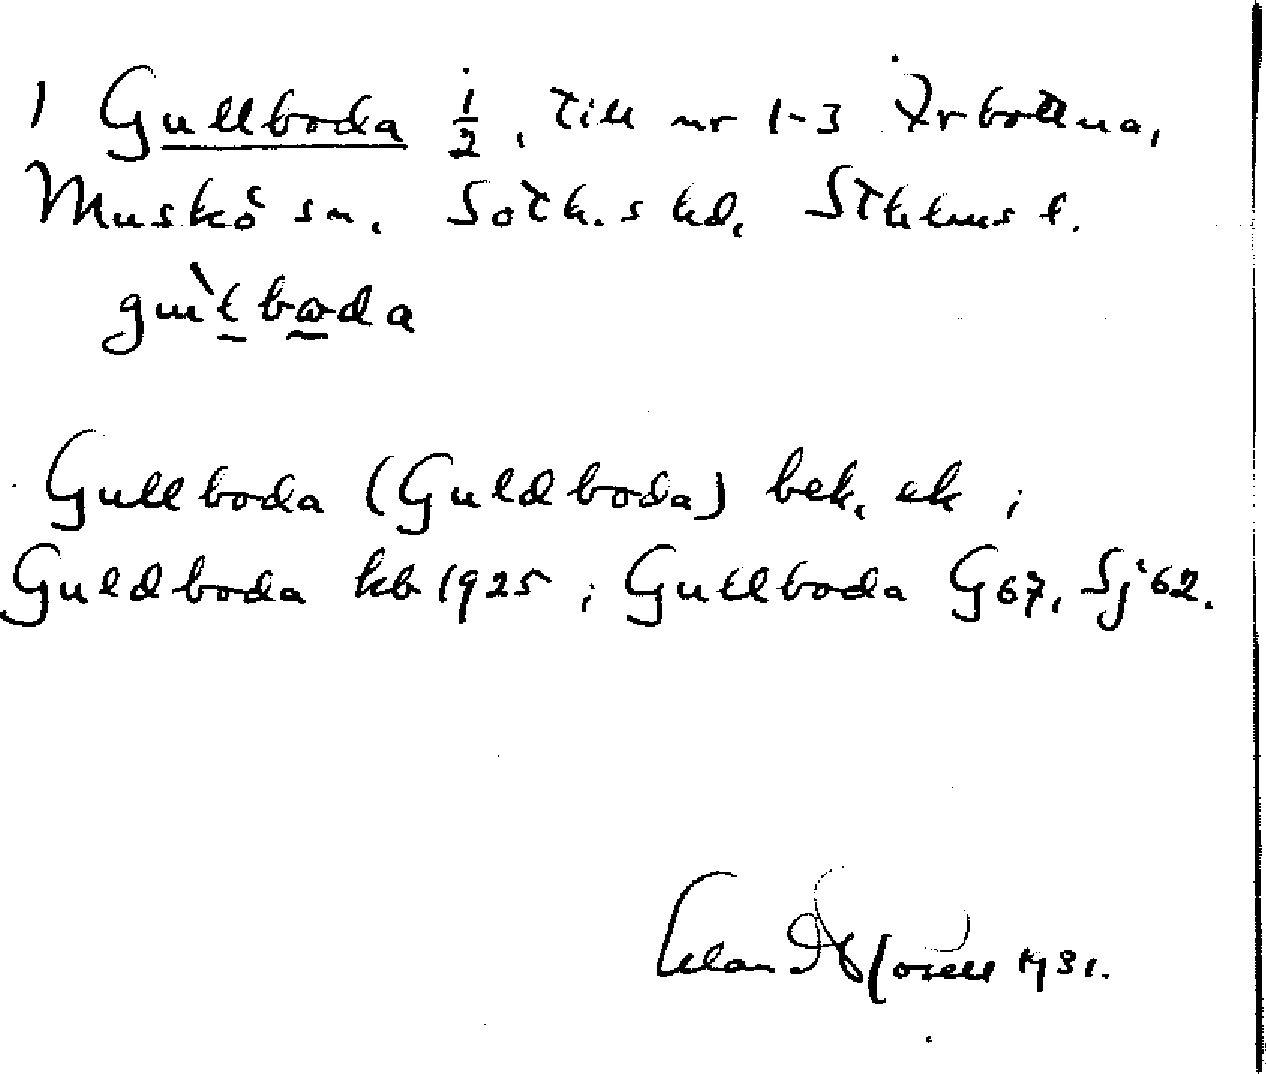 1 Gullboda 1/2, till nr 1-3 Arbottna,
Muskö sn. Soth.s hd, Sthlms l.
gùlboda
Gullboda (Guldboda) bek, ek ;
Guldboda kb 1925 ; Gullboda G 67, Sj 62.
1931.